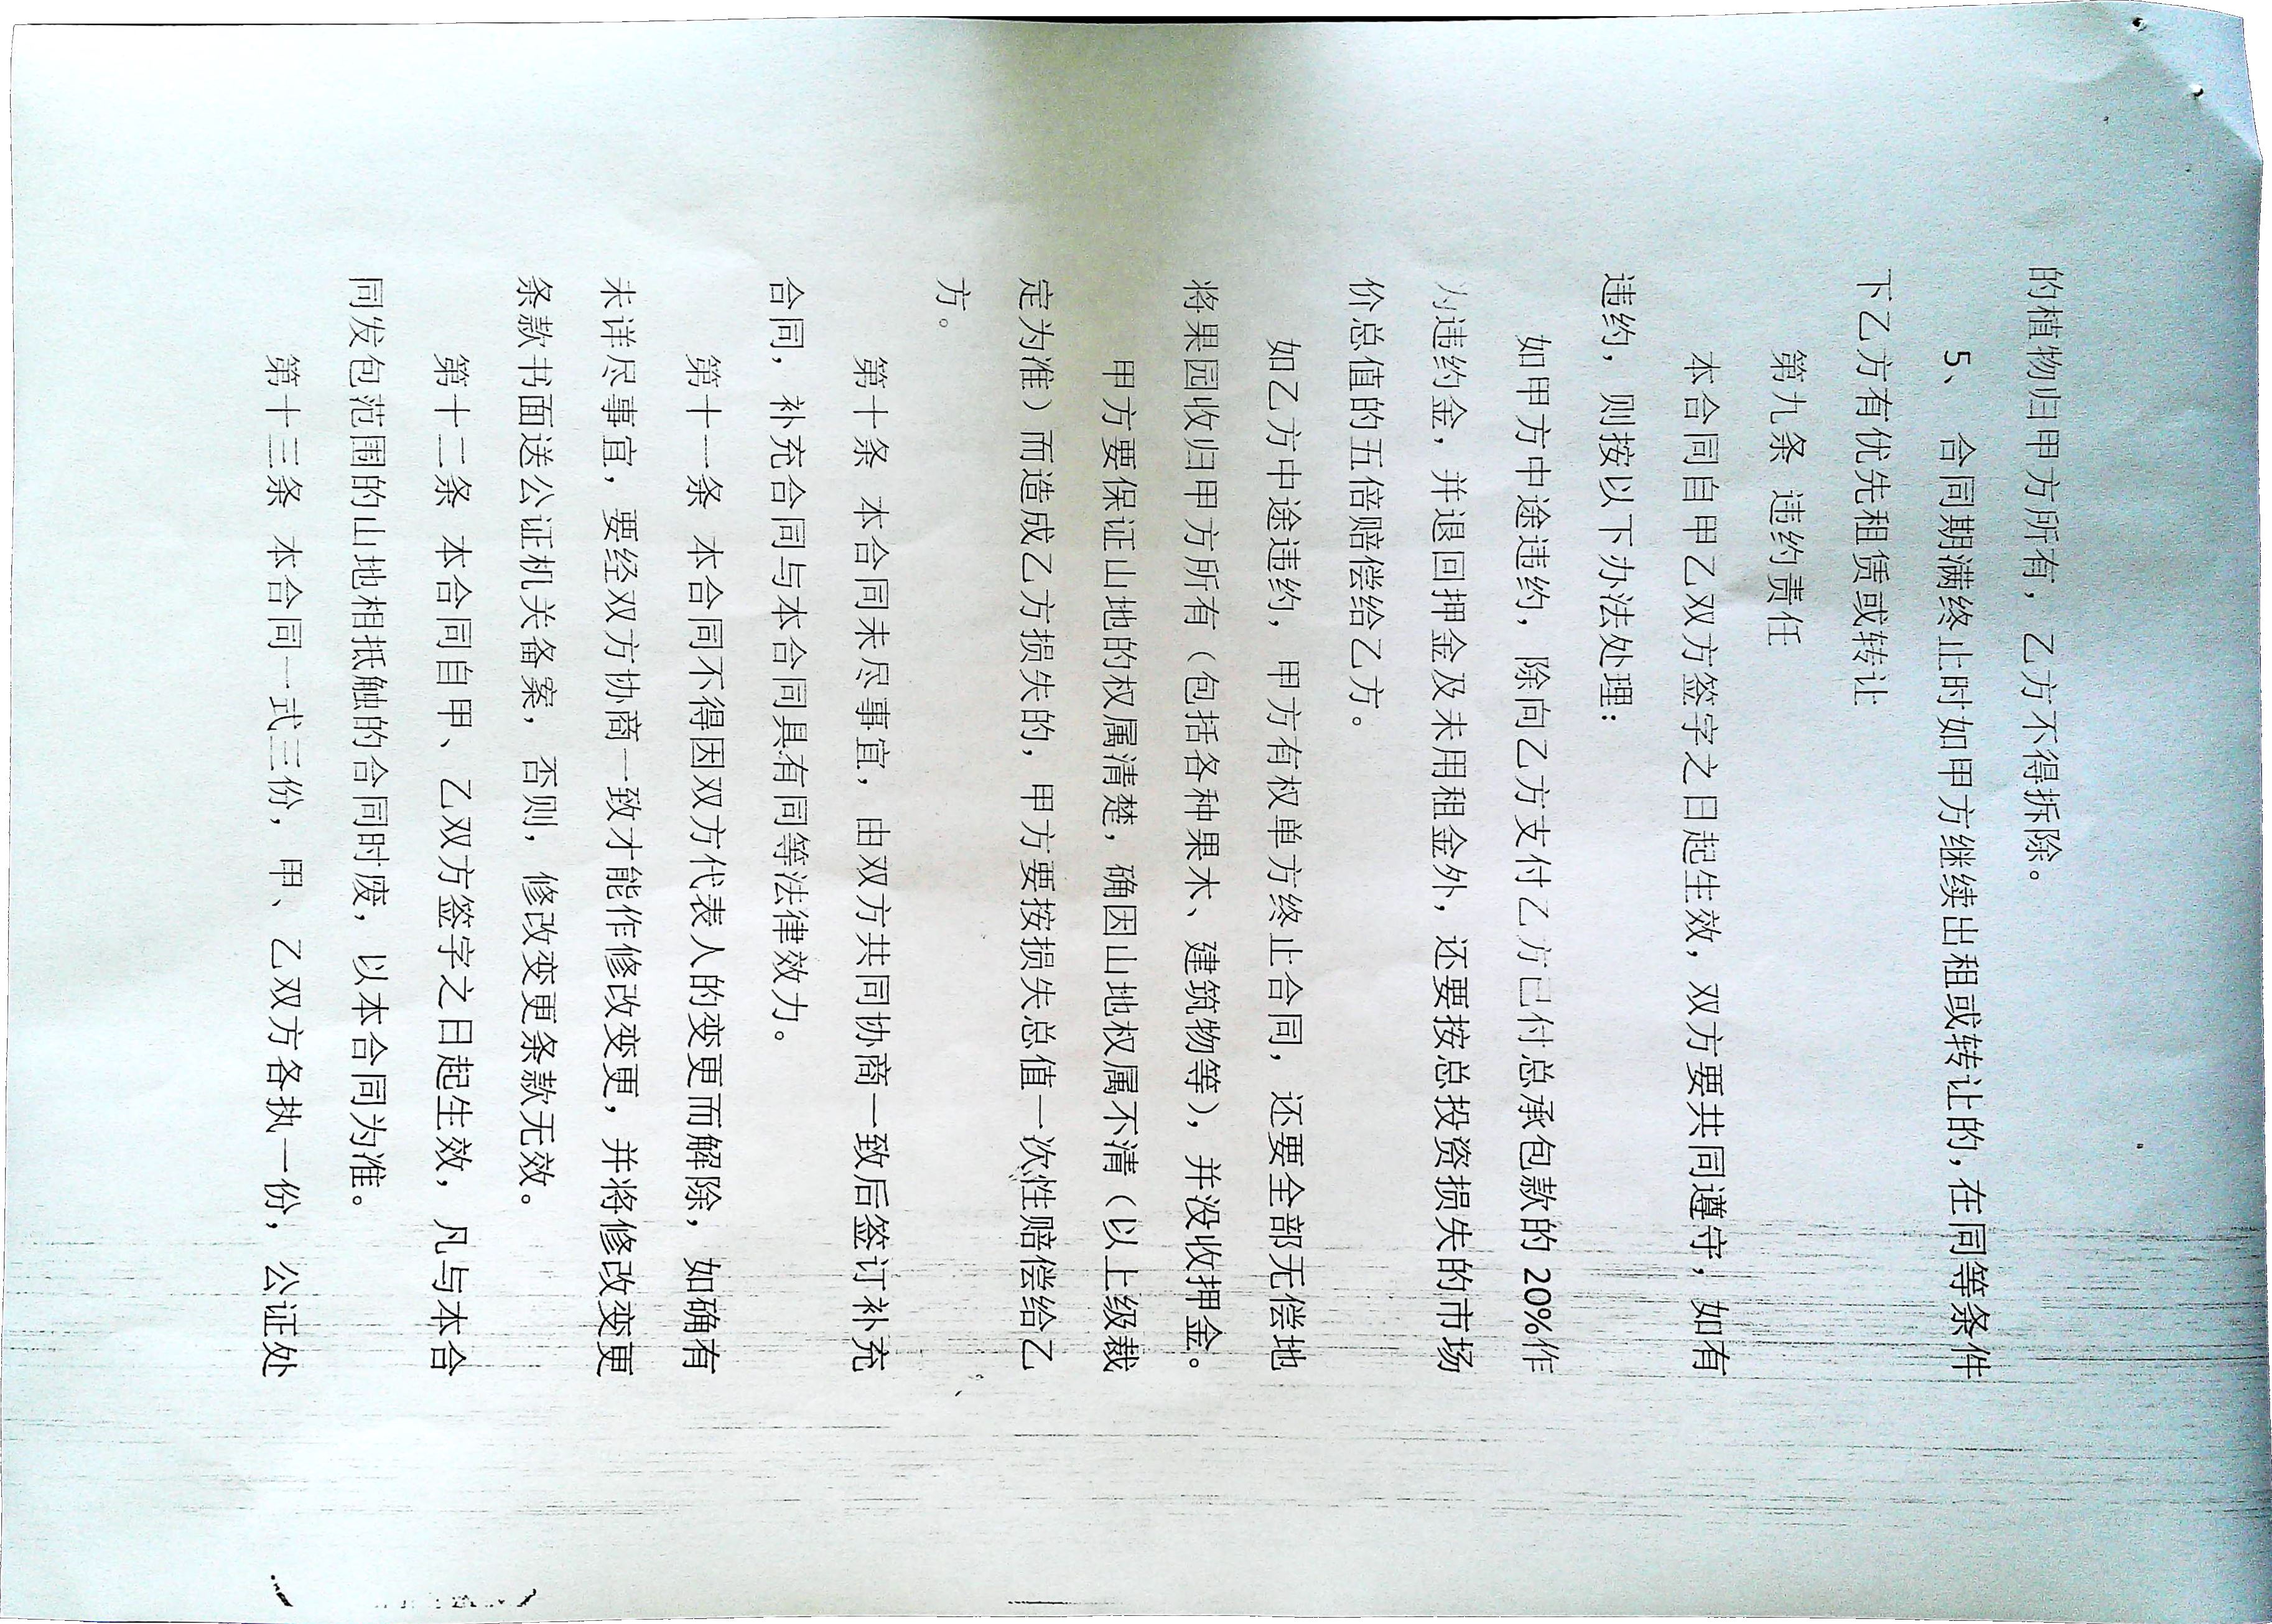 的植物归甲方所有，乙方不得拆除。
5、 合同期满终止时如甲方继续出租或转让的，在同等条件
下乙方有优先租赁或转让
第九条 违约责任
本合同自甲乙双方签字之日起生效，双方要共同遵守，如有
违约，则按以下办法处理：
如甲方中途违约，除向乙方支付乙方已付总承包款的 20%作
为违约金，并退回押金及未用租金外，还要按总投资损失的市场
价总值的五倍赔偿给乙方。
如乙方中途违约，甲方有权单方终止合同，还要全部无偿地
将果园收归甲方所有（包括各种果木、建筑物等），并没收押金。
甲方要保证山地的权属清楚，确因山地权属不清（以上级裁
定为准）而造成乙方损失的，甲方要按损失总值一次性赔偿给乙
方。
第十条 本合同未尽事宜，由双方共同协商一致后签订补充
合同，补充合同与本合同具有同等法律效力。
第十一条 本合同不得因双方代表人的变更而解除，如确有
未详尽事宜，要经双方协商一致才能作修改变更，并将修改变更
条款书面送公证机关备案，否则，修改变更条款无效。
第十二条 本合同自甲、乙双方签字之日起生效，凡与本合
同发包范围的山地相抵触的合同时废，以本合同为准。
第十三条 本合同一式三份，甲、乙双方各执一份，公证处